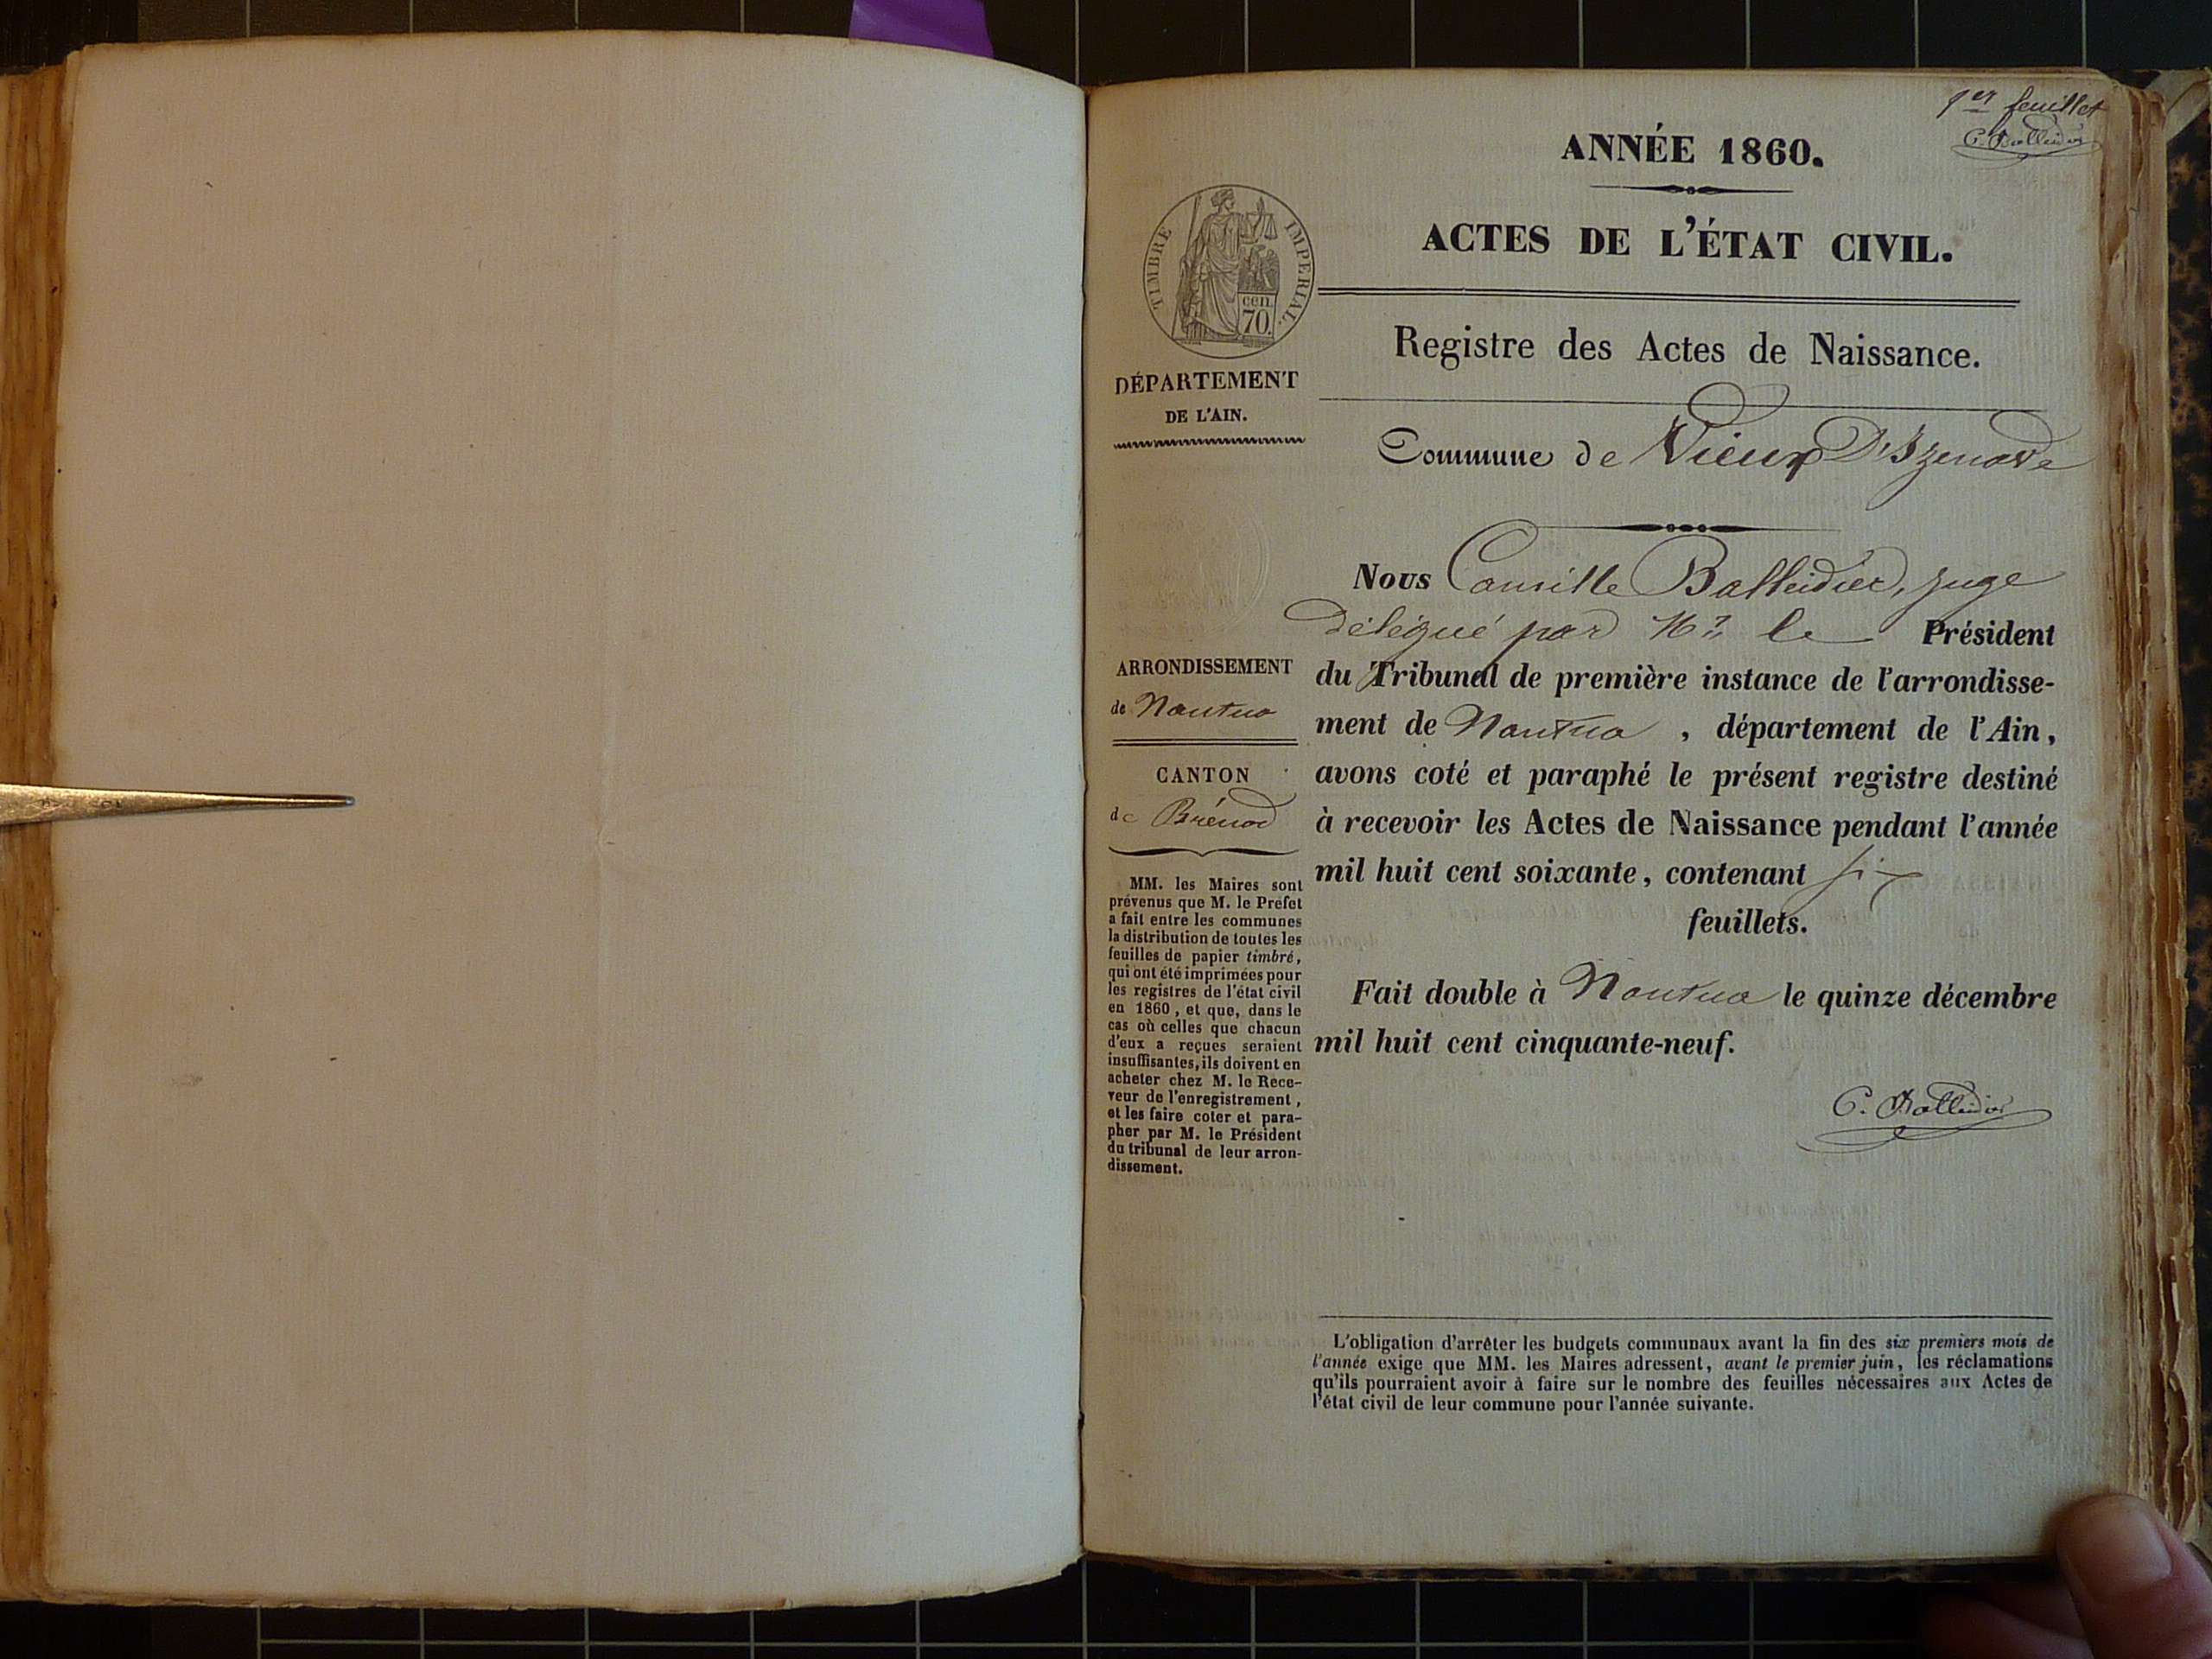 1er feuillet
C. Balleidier
ANNÉE 1860.
ACTES DE L'ÉTAT CIVIL.
TIMBRE IMPERIAL.
CEN.
70.
DÉPARTEMENT
DE L'AIN.
Registre des Actes de Naissance.
Commune de Vieux D'Izenave
Nous Camille Balleidier, juge
délégué par Mr. le Président
du Tribunal de première instance de l'arrondisse-
ment de Nantua, département de l'Ain,
avons coté et paraphé le présent registre destiné
à recevoir les Actes de Naissance pendant l'année
mil huit cent soixante, contenant six
feuillets.
Fait double à Nantua le quinze décembre
mil huit cent cinquante-neuf.
C. Balleidier
ARRONDISSEMENT
de Nantua
CANTON
de Brénod
MM. les Maires sont
prévenus que M. le Préfet
a fait entre les communes
la distribution de toutes les
feuilles de papier timbré,
qui ont été imprimées pour
les registres de l'état civil
en 1860, et que, dans le
cas où celles que chacun
d'eux a reçues seraient
insuffisantes, ils doivent en
acheter chez M. le Rece-
veur de l'enregistrement,
et les faire coter et para-
pher par M. le Président
du tribunal de leur arron-
dissement.
L'obligation d'arrêter les budgets communaux avant la fin des six premiers mois de
l'année exige que MM. les Maires adressent, avant le premier juin, les réclamations
qu'ils pourraient avoir à faire sur le nombre des feuilles nécessaires aux Actes de
l'état civil de leur commune pour l'année suivante.